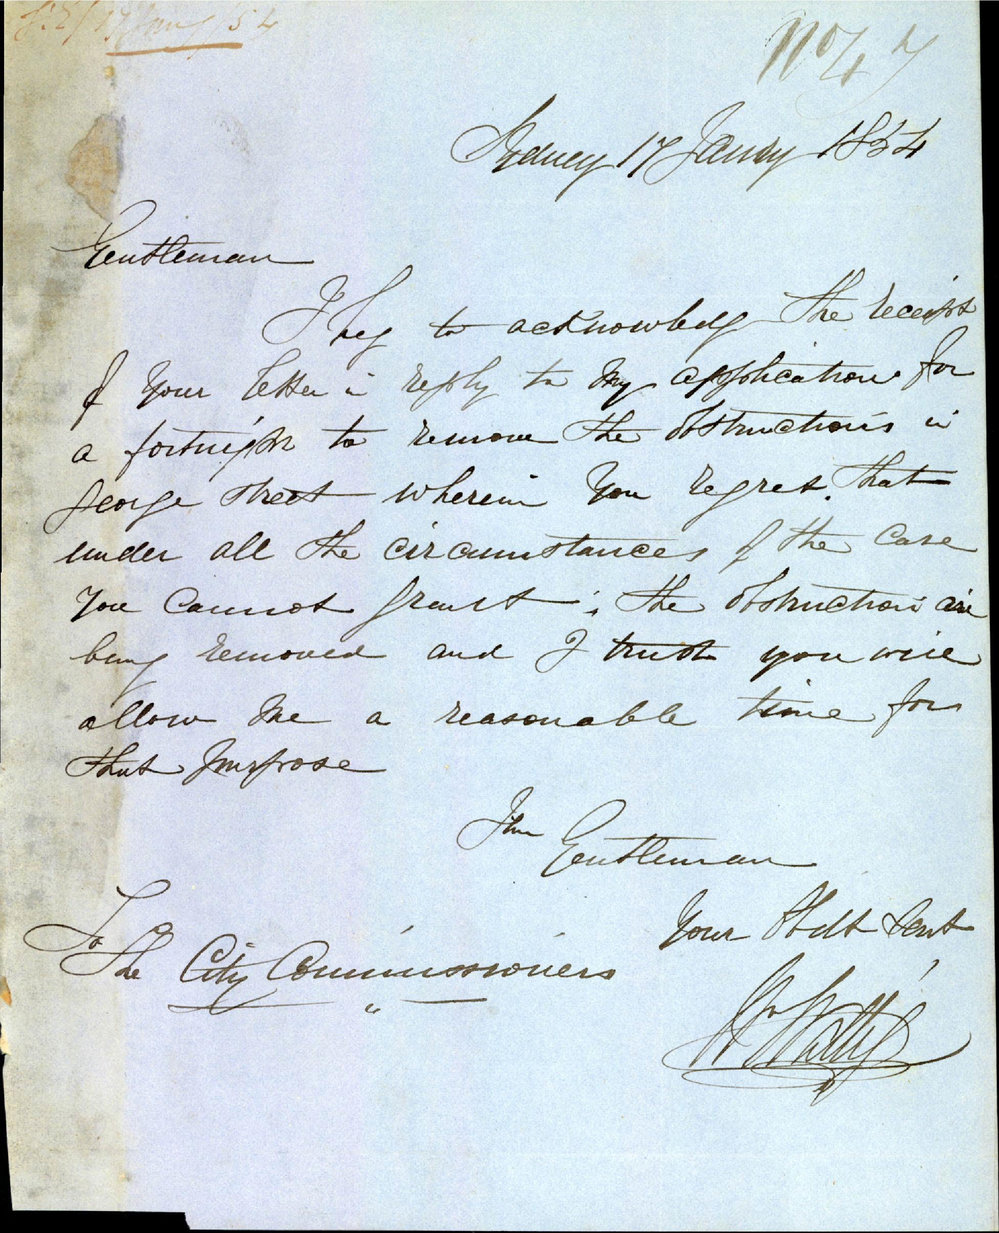 17 Jany 54
No 47
Sydney 17 Janry 1854
Gentleman
I beg to acknowledg the receipt
of Your letter in reply to My application for
a fortnight to remove the obstructions in
George Street wherein You regret that
under all the circumstances of the Case
You Cannot Grant; the obstruction are
being removed and I trust you will
allow Me a reasonable time for
that Purpose
I'm Gentleman
Your Obdt Servt
Wm
To
The City Commissioners